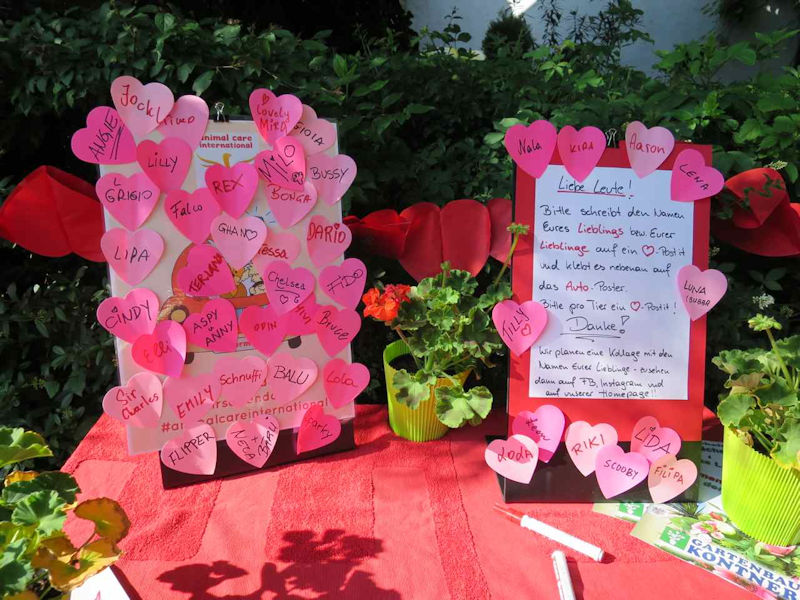 Jockl
Lovely
Mira
ANGIE
animal care
international
LILLY
MILO
BUSSY
GRIGIO
REX
BONGA
Falco
GHANO
DARIO
LIPA
Tessa
Chelsea
CINDY
ASPY
ANNY
ODIN
Bruce
Elli
Schnuffi
BALU
Lola
Sir
Charles
EMILY
FLIPPER
Party
Nala
KIRA
Aaron
LENA
Liebe Leute!
Bitte schreibt den Namen
Eures Lieblings bzw. Eurer
Lieblinge auf ein ♡-Post it
und klebt es nebenan auf
das Auto-Poster.
Bitte pro Tier ein ♡-Postit!
Danke!
Wir planen eine Kollage mit den
Namen Eurer Lieblinge - ersehen
dann auf FB, Instagram und
auf unserer Homepage!!
LUNA
TILLY
RIKI
LIDA
SCOOBY
FILIPA
GARTENBAU
KONTNER